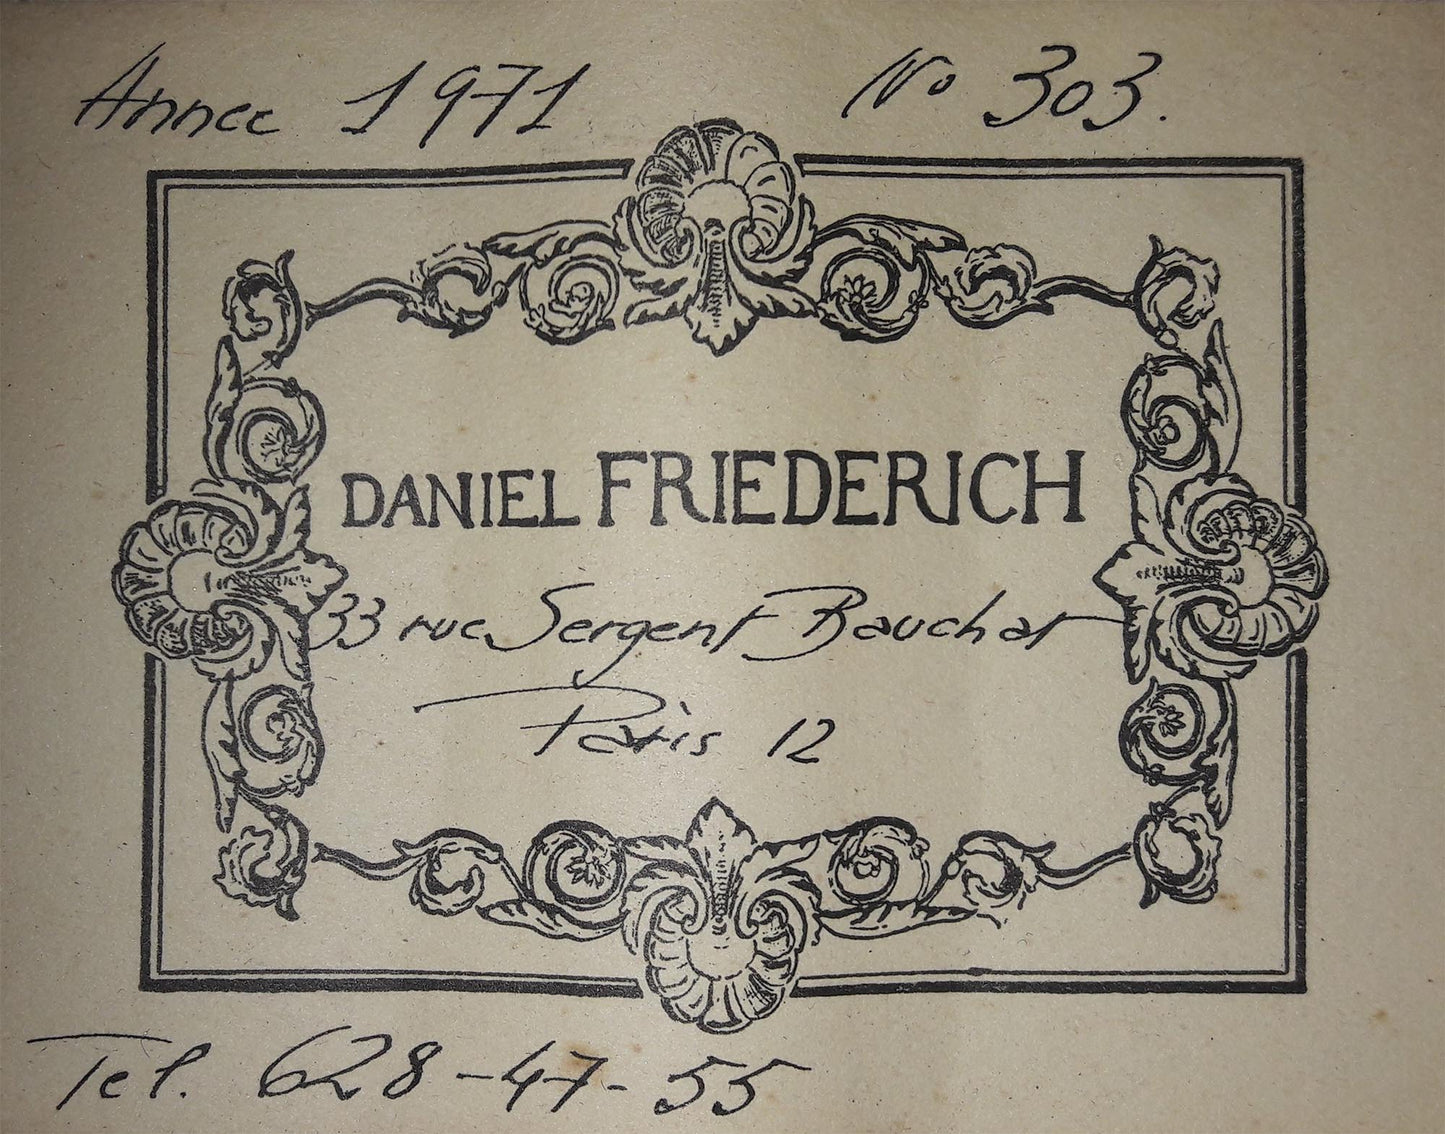 Annee 1971 No 303.
DANIEL FRIEDERICH
33 rue Sergent Bauchat
Paris 12
Tel. 628-47-55